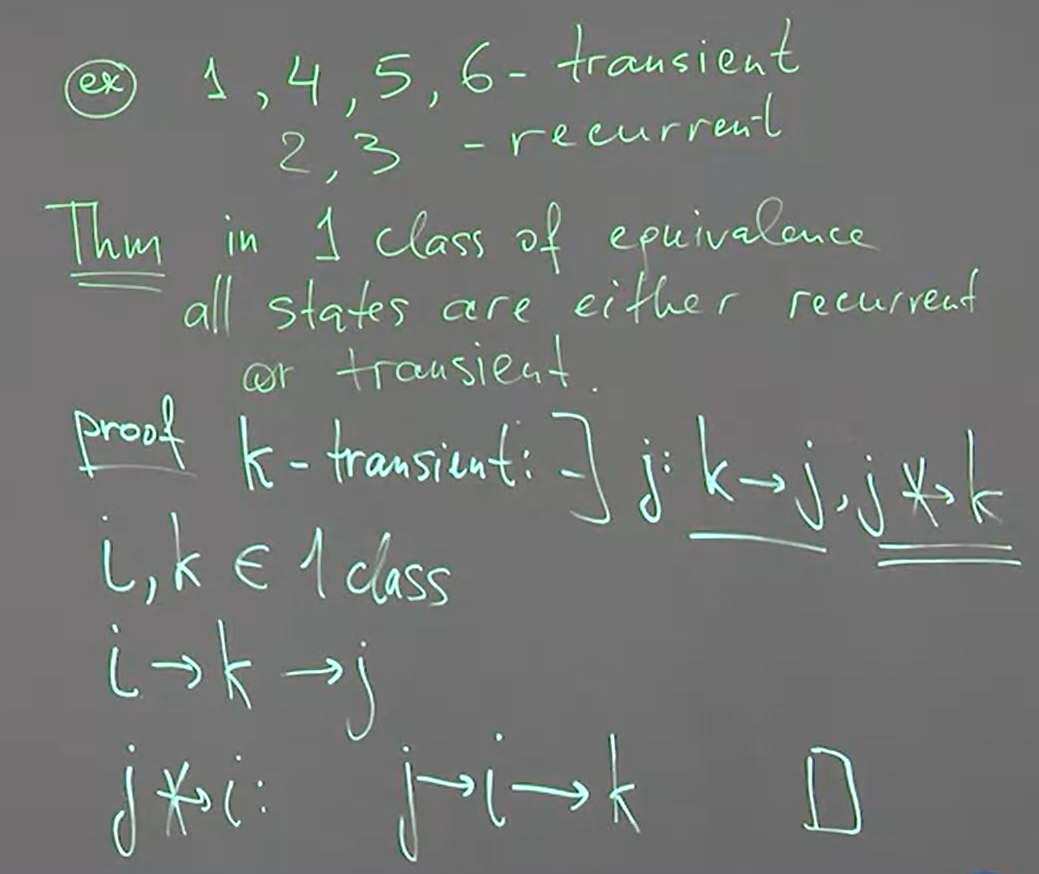 ex 1, 4, 5, 6 - transient
2, 3 - recurrent
Thm in 1 class of equivalence
all states are either recurrent
or transient.
proof k - transient: ∃ j: k → j, j ↛ k
i, k ∈ 1 class
i → k → j
j ↛ i: j → i → k □